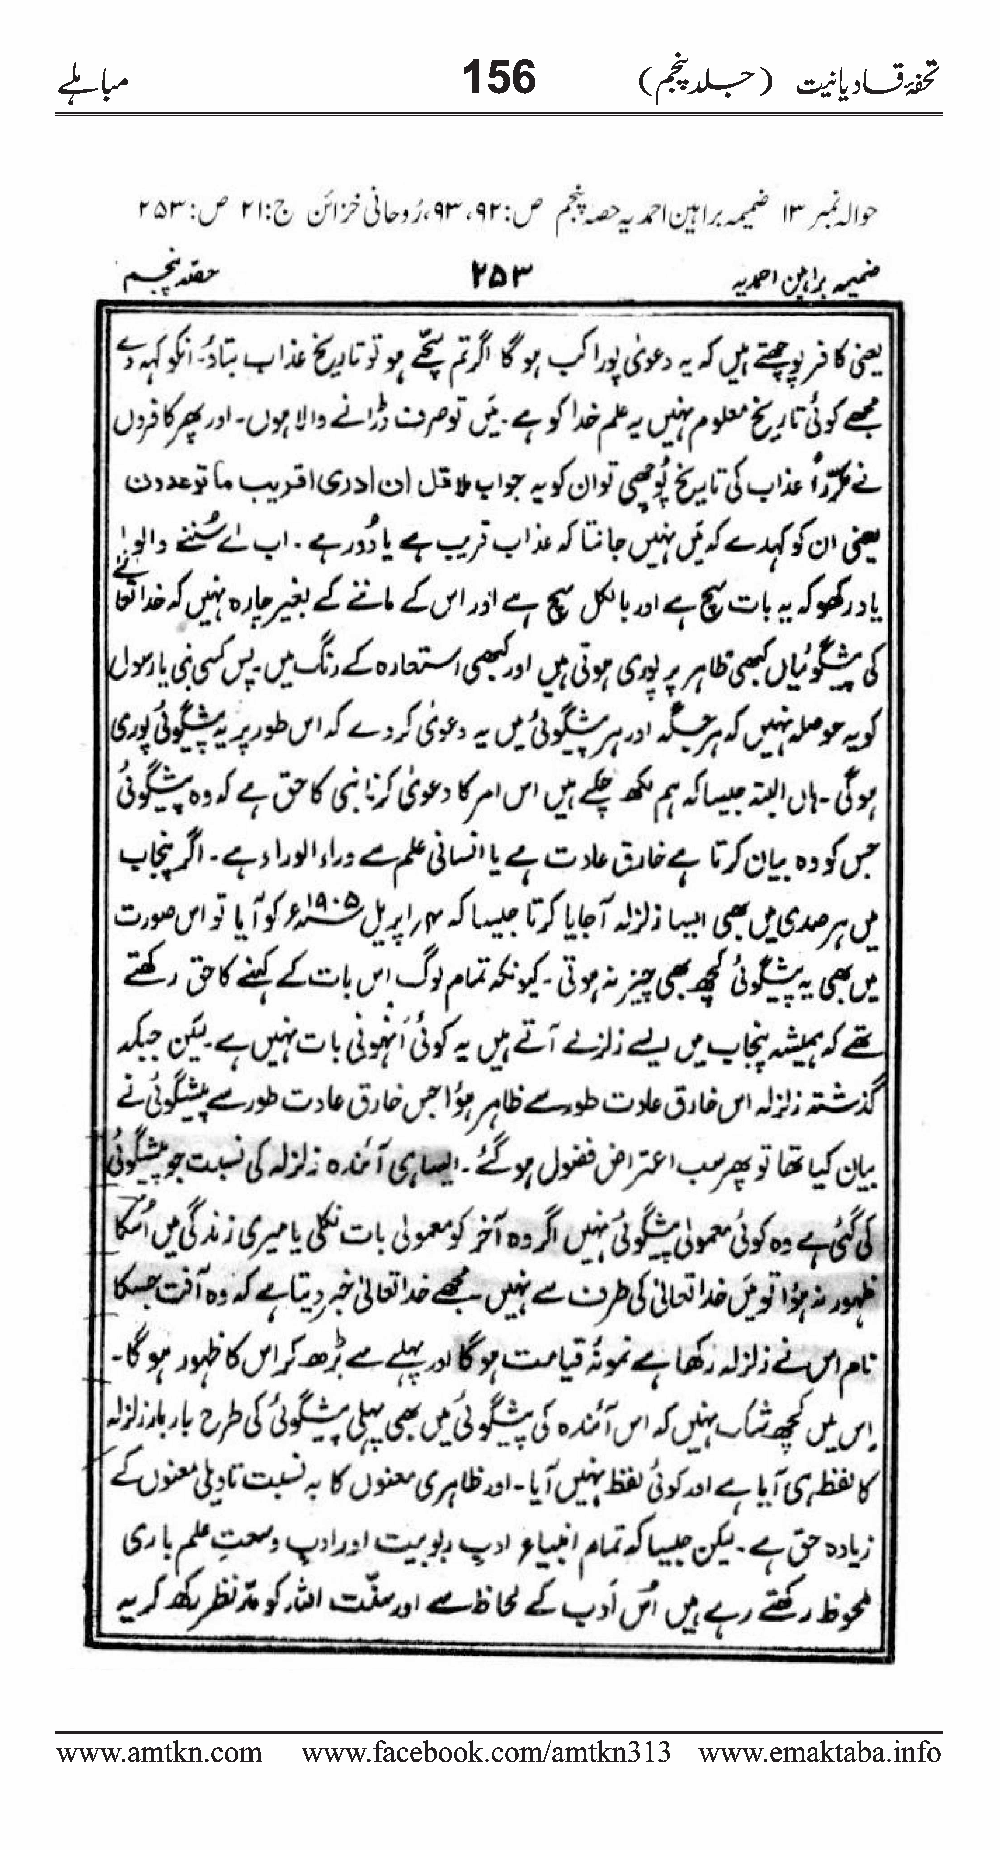 تحفۂ قادیانیت (جلد پنجم) 156 مباہلے
حوالہ نمبر ۱۳ ضمیمہ براہین احمدیہ حصہ پنجم ص:۹۲، ۹۳، رُوحانی خزائن ج:۲۱ ص:۲۵۳
ضمیمہ براہین احمدیہ ۲۵۳ حصہ پنجم
یعنی کافر پوچھتے ہیں کہ یہ دعویٰ پورا کب ہو گا اگر تم سچّے ہو تو تاریخ عذاب بتاؤ۔ انکو کہہ دے
مجھے کوئی تاریخ معلوم نہیں یہ علم خدا کو ہے۔ مَیں تو صرف ڈرانے والا ہوں۔ اور پھر کافروں
نے مکرّر اً عذاب کی تاریخ پُوچھی تو ان کو یہ جواب ملا قل ان ادری اقریب ما توعدون
یعنی ان کو کہدے کہ مَیں نہیں جانتا کہ عذاب قریب ہے یا دُور ہے۔ اب اے سُننے والو!
یاد رکھو کہ یہ بات سچ ہے اور بالکل سچ ہے اور اس کے ماننے کے بغیر چارہ نہیں کہ خدا تعالےٰ
کی پیشگوئیاں کبھی ظاہر پر پوری ہوتی ہیں اور کبھی استعارہ کے رنگ میں۔ پس کسی نبی یا رسول
کو یہ حوصلہ نہیں کہ ہر جگہ اور ہر پیشگوئی میں یہ دعویٰ کر دے کہ اس طور پر یہ پیشگوئی پوری
ہوگی۔ ہاں البتہ جیسا کہ ہم لکھ چکے ہیں اس امر کا دعویٰ کرنا نبی کا حق ہے کہ وہ پیشگوئی
جس کو وہ بیان کرتا ہے خارق عادت ہے یا انسانی علم سے وراء الوراء ہے۔ اگر پنجاب
میں ہر صدی میں بھی ایسا زلزلہ آجایا کرتا جیسا کہ ۴؍ اپریل ۱۹۰۵ء کو آیا تو اس صورت
میں بھی یہ پیشگوئی کچھ بھی چیز نہ ہوتی۔ کیونکہ تمام لوگ اس بات کے کہنے کا حق رکھتے
تھے کہ ہمیشہ پنجاب میں ایسے زلزلے آتے ہیں یہ کوئی اَنہُونی بات نہیں ہے۔ لیکن جبکہ
گذشتہ زلزلہ اس خارق عادت طور سے ظاہر ہؤا جس خارق عادت طور سے پیشگوئی نے
بیان کیا تھا تو پھر سب اعتراض فضول ہوگئے۔ ایسا ہی آئندہ زلزلہ کی نسبت جو پیشگوئی
کی گئی ہے وہ کوئی معمولی پیشگوئی نہیں اگر وہ آخر کو معمولی بات نکلی یا میری زندگی میں اُسکا
ظہور نہ ہؤا تو مَیں خدا تعالیٰ کی طرف سے نہیں۔ مجھے خدا تعالیٰ خبر دیتا ہے کہ وہ آفت جسکا
نام اس نے زلزلہ رکھا ہے نمونۂ قیامت ہو گا اور پہلے سے بڑھ کر اس کا ظہور ہو گا۔
اِس میں کچھ شک نہیں کہ اس آئندہ کی پیشگوئی میں بھی پہلی پیشگوئی کی طرح بار بار زلزلہ
کا لفظ ہی آیا ہے اور کوئی لفظ نہیں آیا۔ اور ظاہری معنوں کا بہ نسبت تاویلی معنوں کے
زیادہ حق ہے۔ لیکن جیسا کہ تمام انبیاء ادبِ ربوبیت اور ادبِ وسعتِ علم باری
ملحوظ رکھتے رہے ہیں اُس اَدب کے لحاظ سے اور سنّت اللہ کو مدّنظر رکھ کر یہ
www.amtkn.com www.facebook.com/amtkn313 www.emaktaba.info